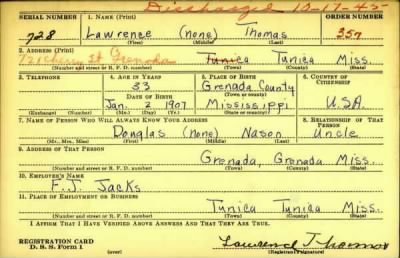 Discharged 10-17-45
SERIAL NUMBER 1. NAME (Print) ORDER NUMBER
728 Lawrence (none) Thomas 357
(First) (Middle) (Last)
2. ADDRESS (Print)
721 Cherry St Grenada Tunica Tunica Miss.
(Number and street or R. F. D. number) (Town) (County) (State)
3. TELEPHONE 4. AGE IN YEARS 5. PLACE OF BIRTH 6. COUNTRY OF CITIZENSHIP
33 Grenada County
DATE OF BIRTH (Town or county)
Jan. 2 1907 Mississippi U.S.A.
(Exchange) (Number) (Mo.) (Day) (Yr.) (State or country)
7. NAME OF PERSON WHO WILL ALWAYS KNOW YOUR ADDRESS 8. RELATIONSHIP OF THAT PERSON
Douglas (none) Nason Uncle
(Mr., Mrs., Miss) (First) (Middle) (Last)
9. ADDRESS OF THAT PERSON
Grenada, Grenada Miss.
(Number and street or R. F. D. number) (Town) (County) (State)
10. EMPLOYER'S NAME
F.J. Jacks
11. PLACE OF EMPLOYMENT OR BUSINESS
Tunica Tunica Miss.
(Number and street or R. F. D. number) (Town) (County) (State)
I AFFIRM THAT I HAVE VERIFIED ABOVE ANSWERS AND THAT THEY ARE TRUE.
REGISTRATION CARD
D. S. S. Form 1 (over) Lawrence Thomas
(Registrant's signature)